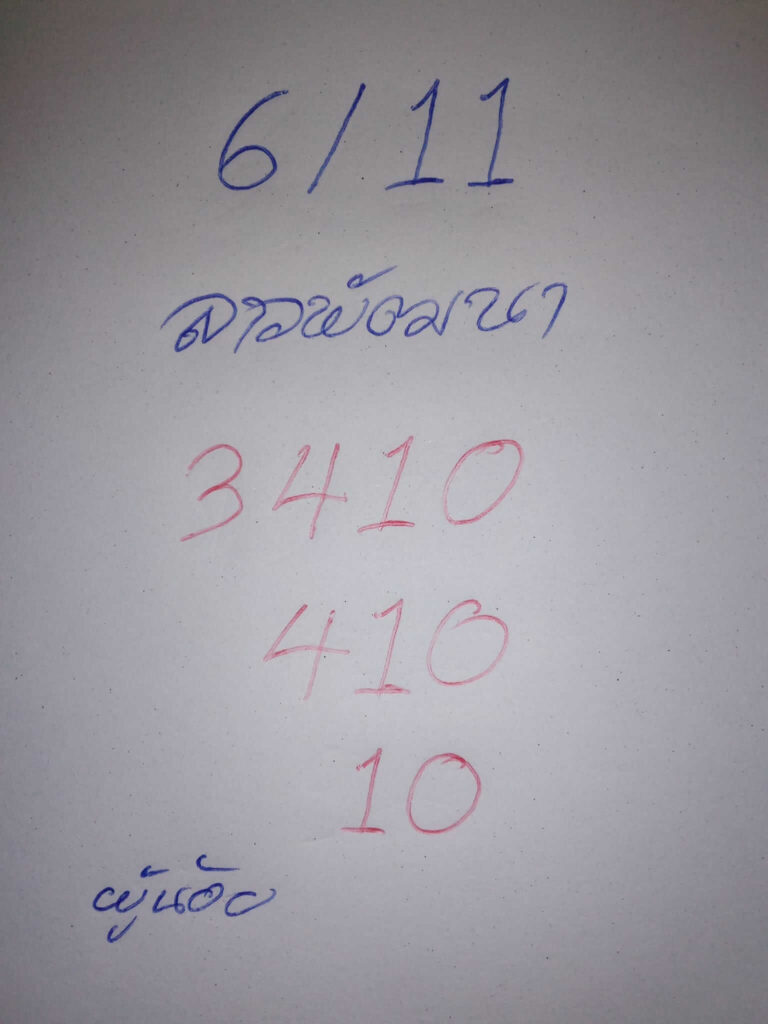 6/11
ลาวพัฒนา
3410
410
10
ผู้น้อย